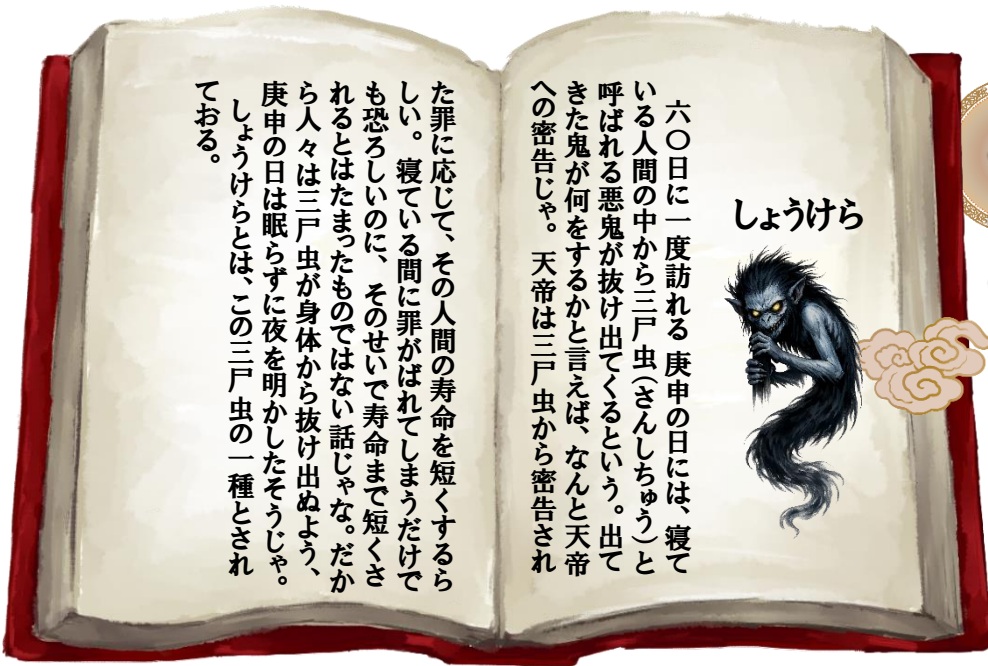 しょうけら
六〇日に一度訪れる 庚申の日には、寝て
いる人間の中から三尸 虫（さんしちゅう）と
呼ばれる悪鬼が抜け出てくるという。出て
きた鬼が何をするかと言えば、なんと天帝
への密告じゃ。 天帝は三尸 虫から密告され
た罪に応じて、その人間の寿命を短くするら
しい。 寝ている間に罪がばれてしまうだけで
も恐ろしいのに、 そのせいで寿命まで短くさ
れるとはたまったものではない話じゃな。だか
ら人々は三尸虫が身体から抜け出ぬよう、
庚申の日は眠らずに夜を明かしたそうじゃ。
しょうけらとは、この三尸 虫の一種とされ
ておる。